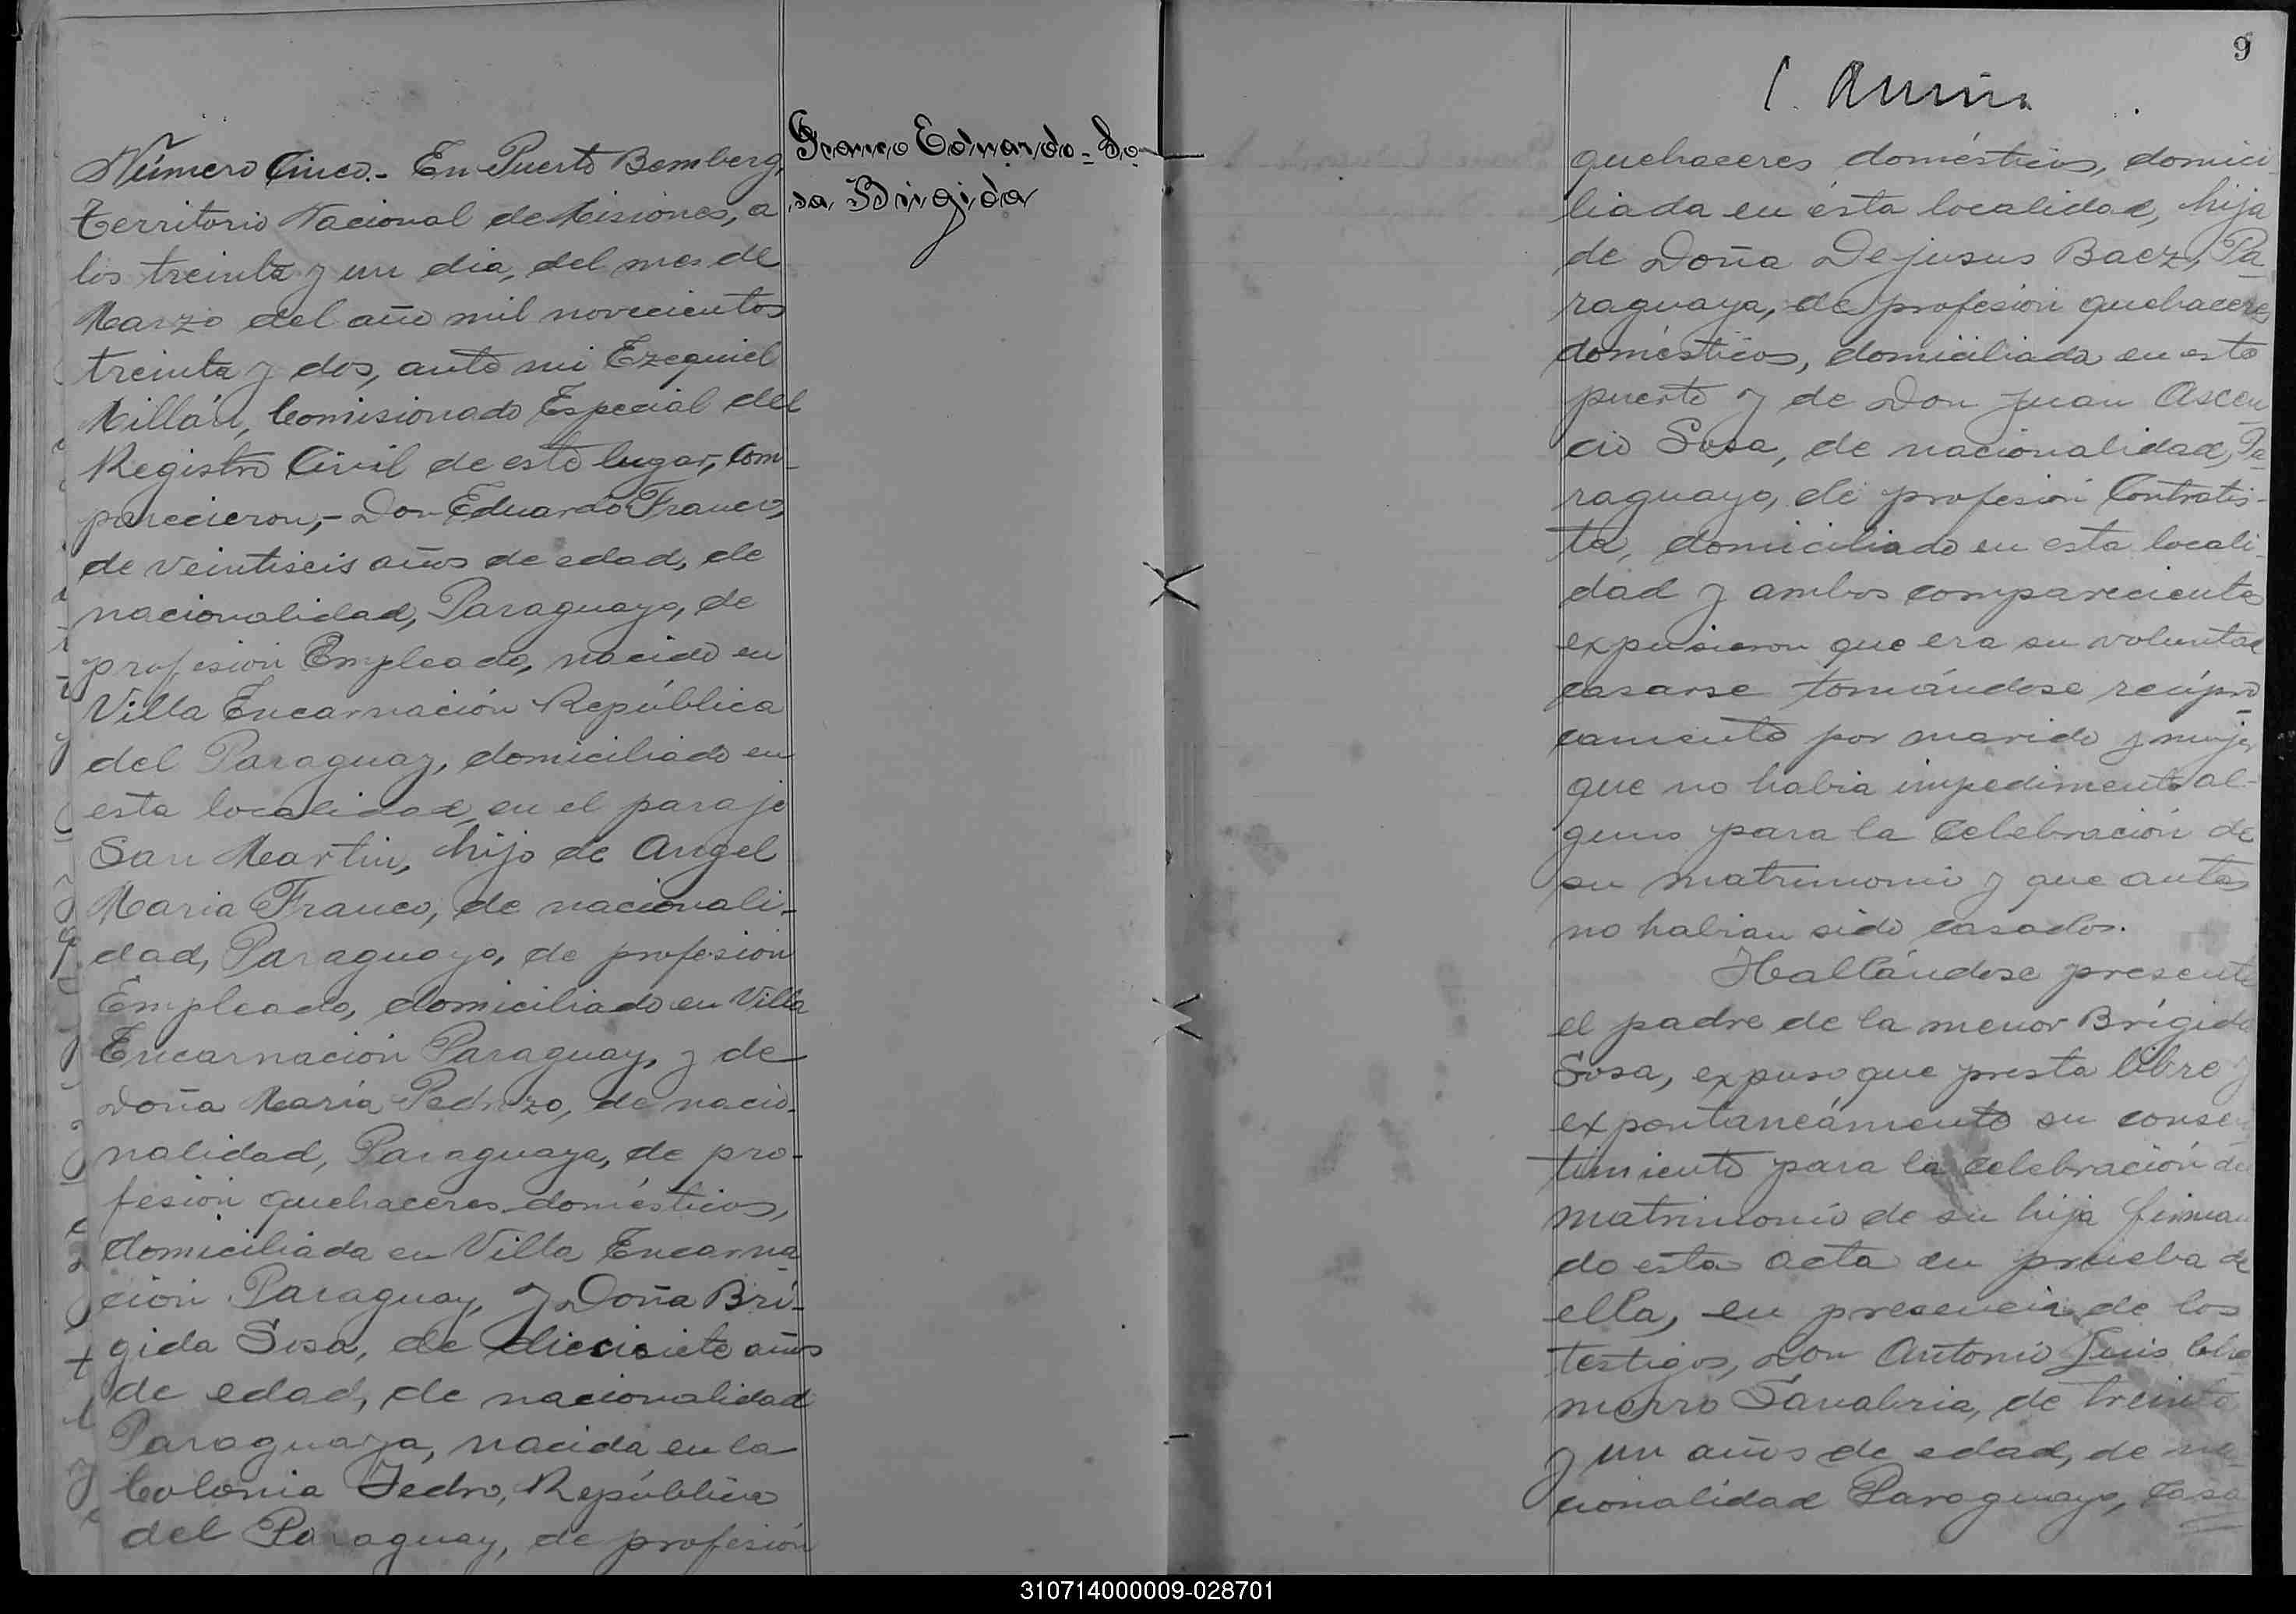 Número Cinco.- En Puerto Bemberg,
Territorio Nacional de Misiones, a
los treinta y un dia, del mes de
Marzo del año mil novecientos
treinta y dos, ante mi Ezequiel
Millán, Comisionado Especial del
Registro Civil de este lugar, com-
parecieron,- Don Eduardo Franco,
de veintiseis años de edad, de
nacionalidad, Paraguayo, de
profesión Empleado, nacido en
Villa Encarnación República
del Paraguay, domiciliado en
esta localidad, en el paraje
San Martin, hijo de Angel
Maria Franco, de nacionali-
dad, Paraguayo, de profesión
Empleado, domiciliado en Villa
Encarnación Paraguay, y de
Doña María Pedrozo, de nacio-
nalidad, Paraguaya, de pro-
fesión quehaceres domésticos,
domiciliada en Villa Encarna
ción Paraguay, y Doña Brí-
gida Sosa, de diecisiete años
de edad, de nacionalidad
Paraguaya, nacida en la
Colonia Jedro, República
del Paraguay, de profesión
Franco Eduardo - So-
sa Brigida
9
quehaceres domésticos, domici
liada en ésta localidad, hija
de Doña Dejusus Baez, Pa
raguaya, de profesión quehaceres
domésticos, domiciliada en este
puerto y de Don Juan Ascen
cio Sosa, de nacionalidad, Pa
raguayo, de profesión Contratis-
ta, domiciliado en esta locali-
dad y ambos comparecientes
expusieron que era su voluntad
casarse tomándose recípro
camente por marido y mujer
que no habia impedimento al-
guno para la celebración de
su matrimonio y que antes
no habian sido casados.
Hallándose presente
el padre de la menor Brígida
Sosa, expuso que presta libre y
expontaneámente su consen
timiento para la celebración del
matrimonio de su hija firman
do esta acta en prueba de
ella, en presencia de los
testigos, Don Antonio Luis Cha
morro Sanabria, de treinta
y un años de edad, de na-
cionalidad Paraguayo, casa
310714000009-028701